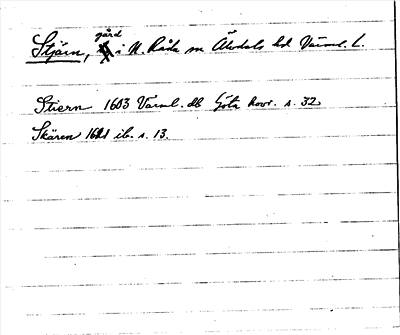 gård
Stjärn, i N. Råda sn Älvdals hd Värml. l.
Stiern 1603 Värml. db Göta hovr. s. 32
Skären 1601 ib. s. 13.